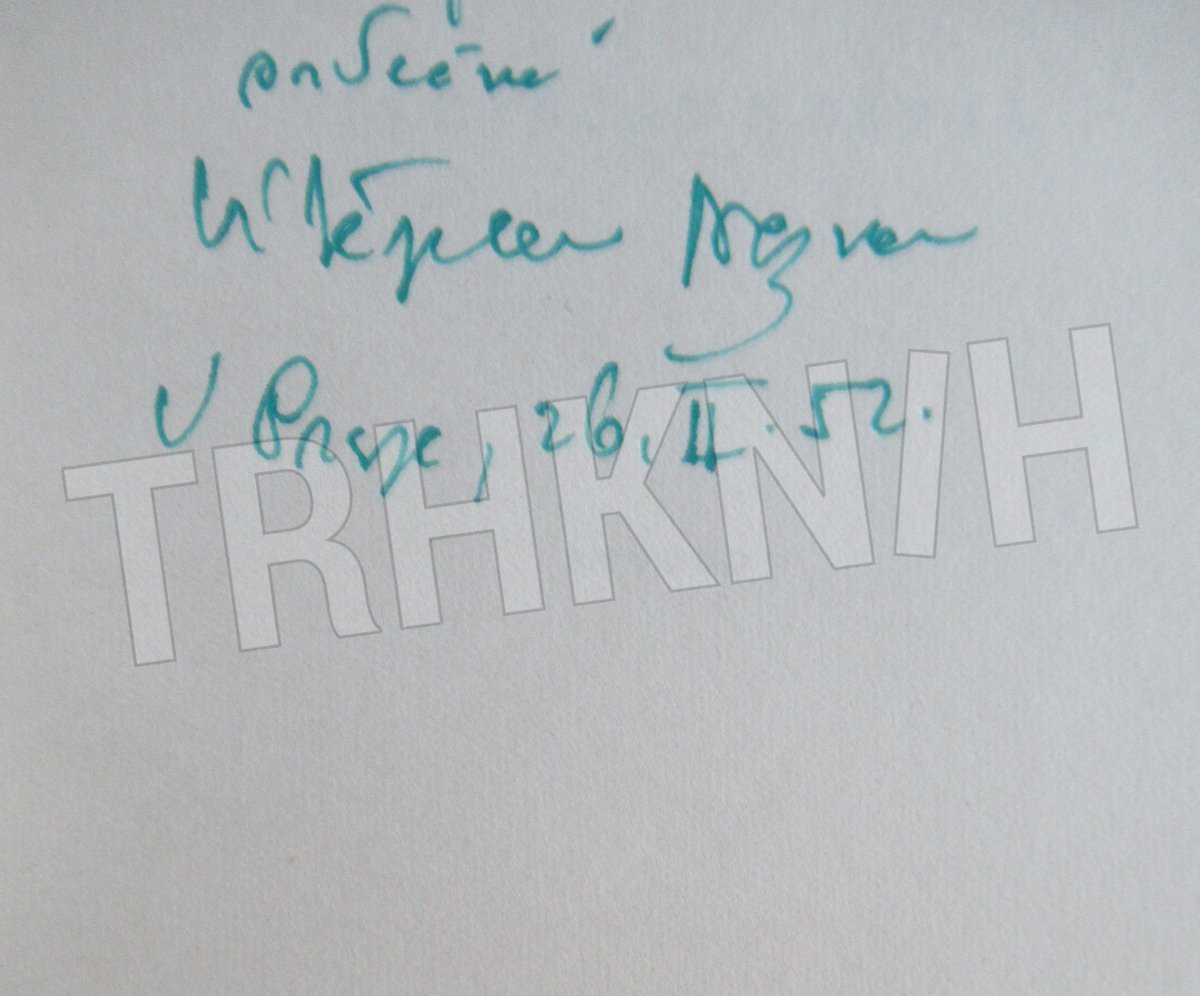 Vítězslav Nezval
V Praze, 26. II. 52.
TRHKN/H